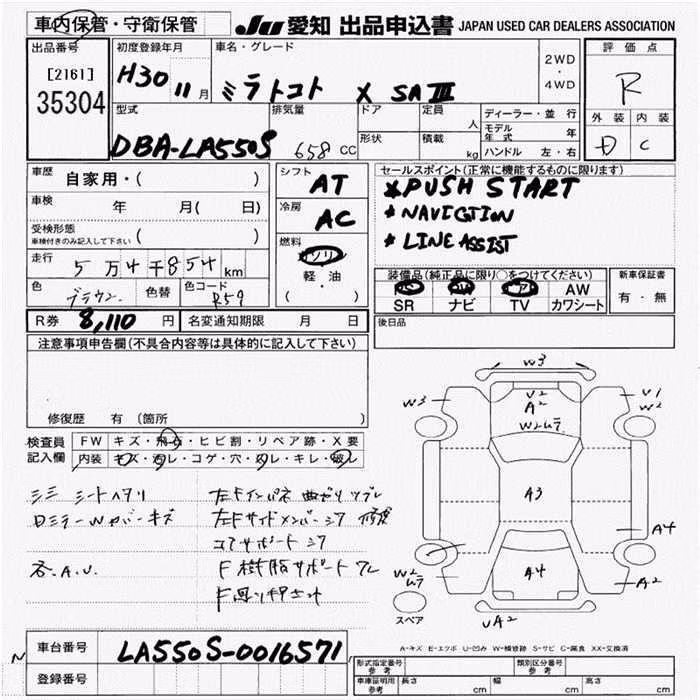 車内保管・守衛保管
JU 愛知 出品申込書 JAPAN USED CAR DEALERS ASSOCIATION
出品番号 [2161] 35304
初度登録年月 H30 11月
車名・グレード ミラトコット X SAⅢ
2WD・4WD
評価点 R
外装 内装 D C
型式 DBA-LA550S
排気量 658 cc
ドア 定員 人
形状 積載 kg
ディーラー・並行
モデル年式 年
ハンドル 左・右
車歴 自家用・( )
車検 年 月( 日)
受検形態 車検付きのみ記入して下さい ( )
走行 5万4千854km
色 ブラウン 色替 色コード R59
シフト AT
冷房 AC
燃料 ガソリン 軽・油 ( )
セールスポイント(正常に機能するものに限ります)
*PUSH START
*NAVIGTION
*LINE ASSIST
装備品(純正品に限り○をつけてください)
PS PW エアB AW
SR ナビ TV カワシート
新車保証書 有・無
R券 8,110円
名変通知期限 月 日
後日品
注意事項申告欄(不具合内容等は具体的に記入して下さい)
修復歴 有 (箇所 )
検査員記入欄
FW キズ・飛石・ヒビ割・リペア跡・X要
内装 キズ・汚レ・コゲ・穴・スレ・キレ・破レ
シートヘタリ
左Fインパネ
Dミラーカバーキズ
左Fサイドメンバー
コアサポート
各.A.U.
F樹脂サポート
W3
W3
V1
W2
U2
A2
W2ムラ
A3
A4
W2
ムラ
A4
A2
UA2
スペア
A-キズ E-エツボ U-凹み W-補修跡 S-サビ C-腐食 XX-交換済
車台番号 LA550S-0016571
登録番号
型式指定番号 参考
類別区分番号 参考
車庫証明用 参考 長さ cm 幅 cm 高さ cm